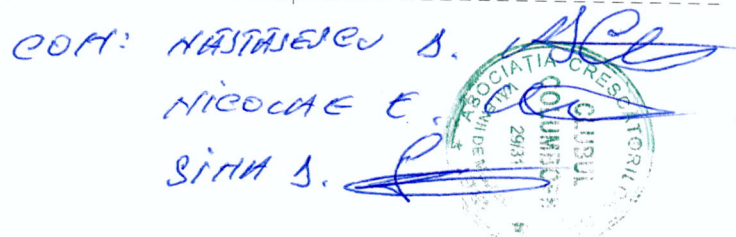 COM: NĂSTĂSESCU D.
NICOLAE E.
SIMA D.
ASOCIATIA CRESCATORILOR
CLUBUL
COLUMBOFIL